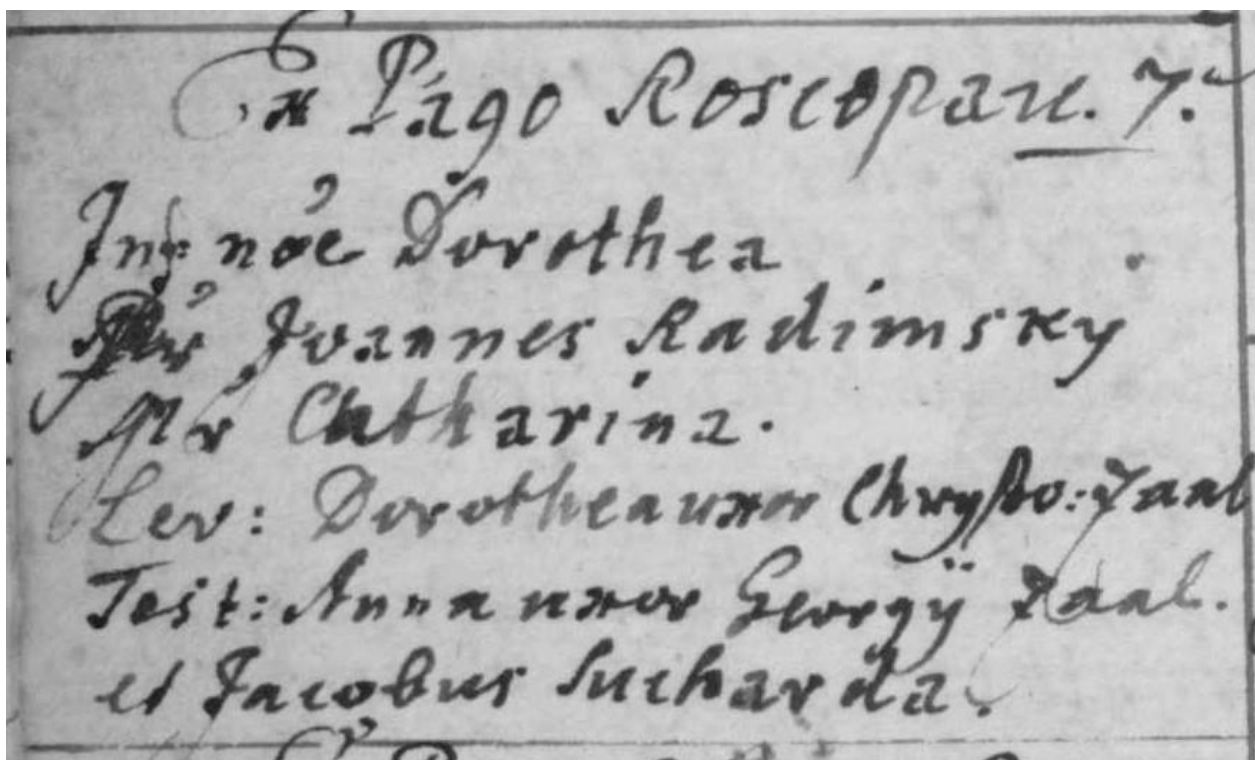 Ex Pago Roscopau. 7.
Inf: nõe Dorothea
Pr̃ Joannes Radimsky
Mr̃ Chatharina.
Lev: Dorothea uxor Chrysto: Zaal
Test: Anna uxor Georgÿ Zaal.
et Jacobus Sucharda.